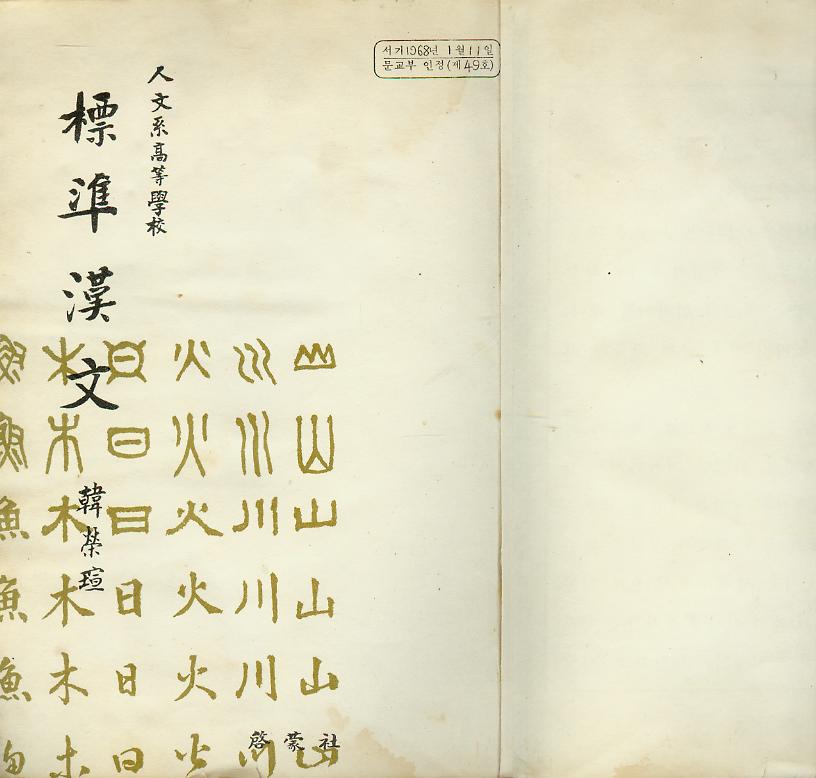 서기1968년 1월11일
문교부 인정(제49호)
人文系高等學校
標準漢文
韓榮瑄
山川火日木魚
山川火日木魚
山川火日木魚
山川火日木魚
山川火日木魚
山川火日木
啓蒙社